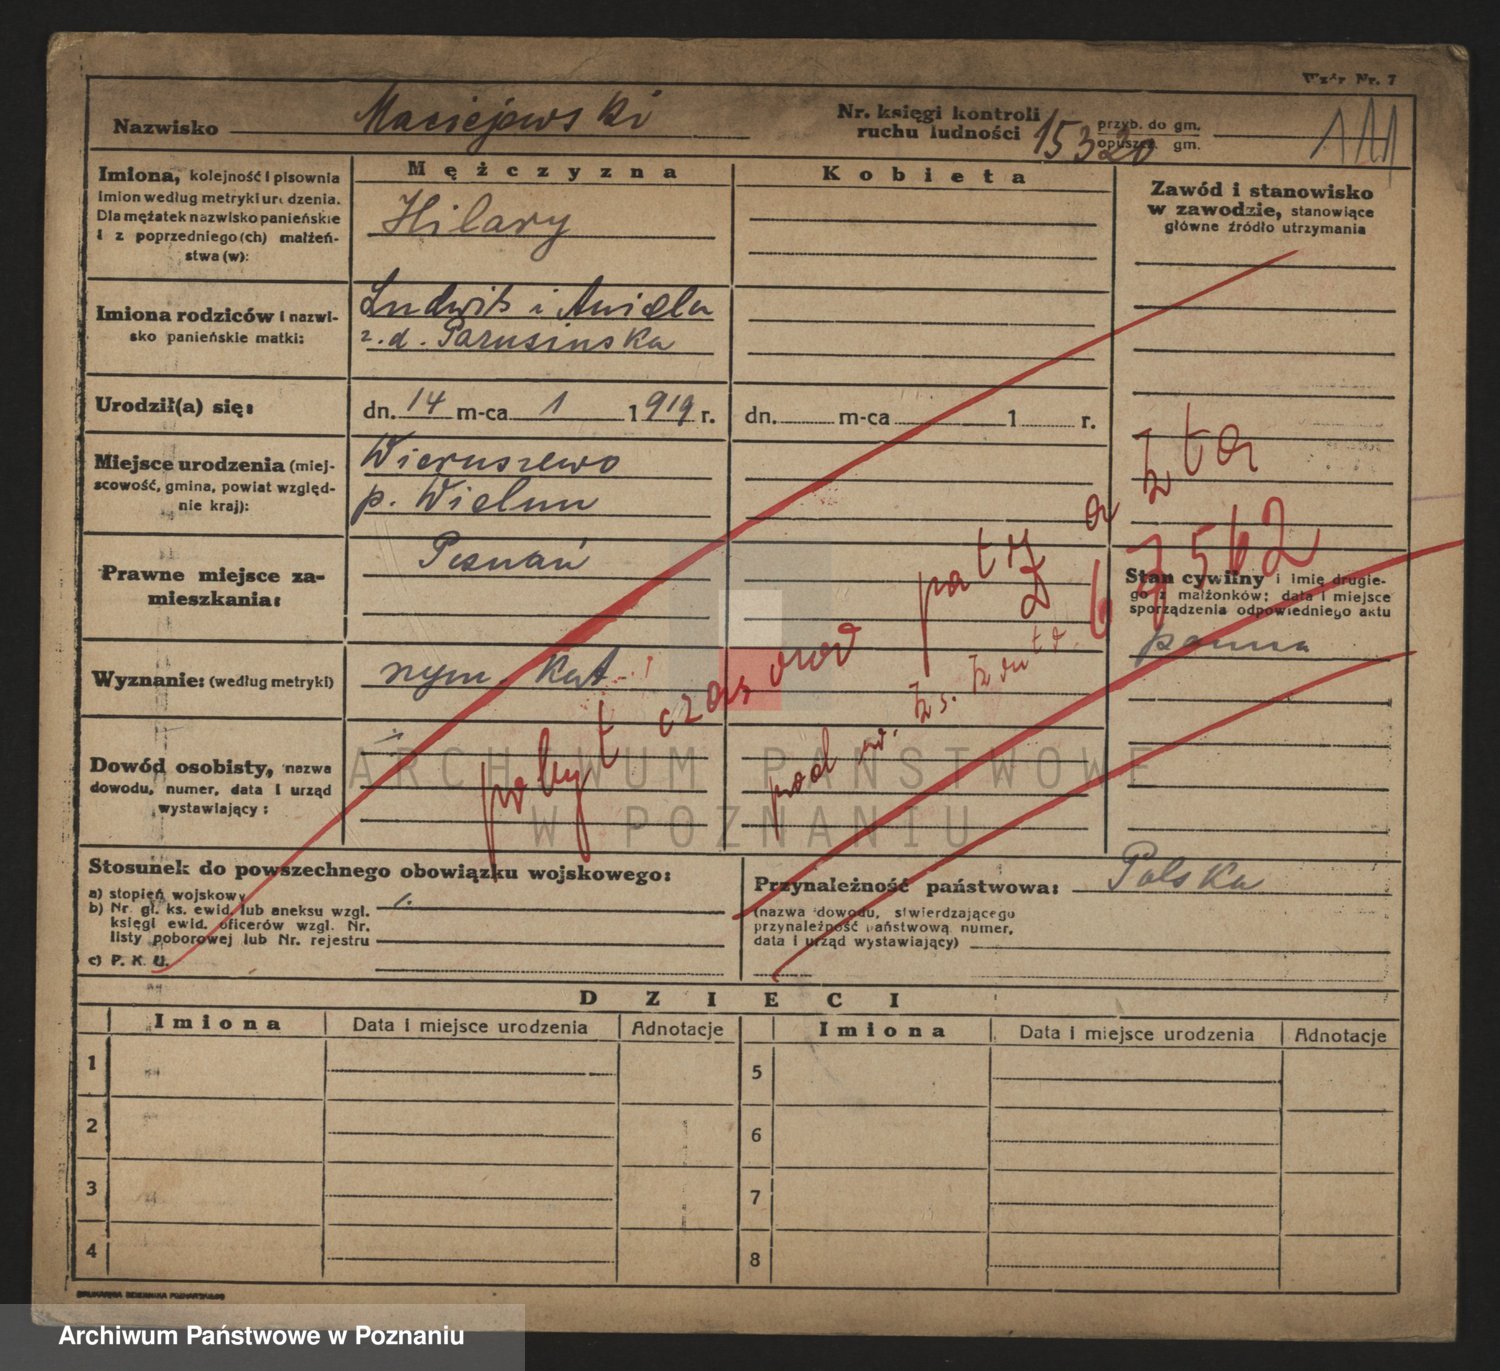 Wzór Nr. 7
Nazwisko Maciejewski
Nr. księgi kontroli ruchu ludności 15320 przyb. do gm. opuszcz. gm. 111
Mężczyzna
Kobieta
Imiona, kolejność i pisownia
imion według metryki urodzenia.
Dla mężatek nazwisko panieńskie
i z poprzedniego(ch) małżeń-
stwa (w):
Hilary
Zawód i stanowisko
w zawodzie, stanowiące
główne źródło utrzymania
Imiona rodziców i nazwi-
sko panieńskie matki:
Ludwik i Aniela
z.d. Parusinska
Urodził(a) się:
dn. 14 m-ca 1 1919 r.
dn. m-ca 1 r.
Miejsce urodzenia (miej-
scowość, gmina, powiat względ-
nie kraj):
Wieruszewo
p. Wielun
Prawne miejsce za-
mieszkania:
Poznań
Stan cywilny i imię drugie-
go z małżonków; data i miejsce
sporządzenia odpowiedniego aktu
panna
Wyznanie: (według metryki)
rzym. kat.
pobyt czasowy patrz
pod
Dowód osobisty, nazwa
dowodu, numer, data i urząd
wystawiający:
Stosunek do powszechnego obowiązku wojskowego:
a) stopień wojskowy
b) Nr. gł. ks. ewid. lub aneksu wzgl.
księgi ewid. oficerów wzgl. Nr.
listy poborowej lub Nr. rejestru
c) P. K. U.
Przynależność państwowa: Polska
(nazwa dowodu, stwierdzającego
przynależność państwową numer,
data i urząd wystawiający)
DZIECI
Imiona Data i miejsce urodzenia Adnotacje
Imiona Data i miejsce urodzenia Adnotacje
1 5
2 6
3 7
4 8
DRUKARNIA DZIENNIKA POZNAŃSKIEGO
ARCHIWUM PAŃSTWOWE
W POZNANIU
Archiwum Państwowe w Poznaniu